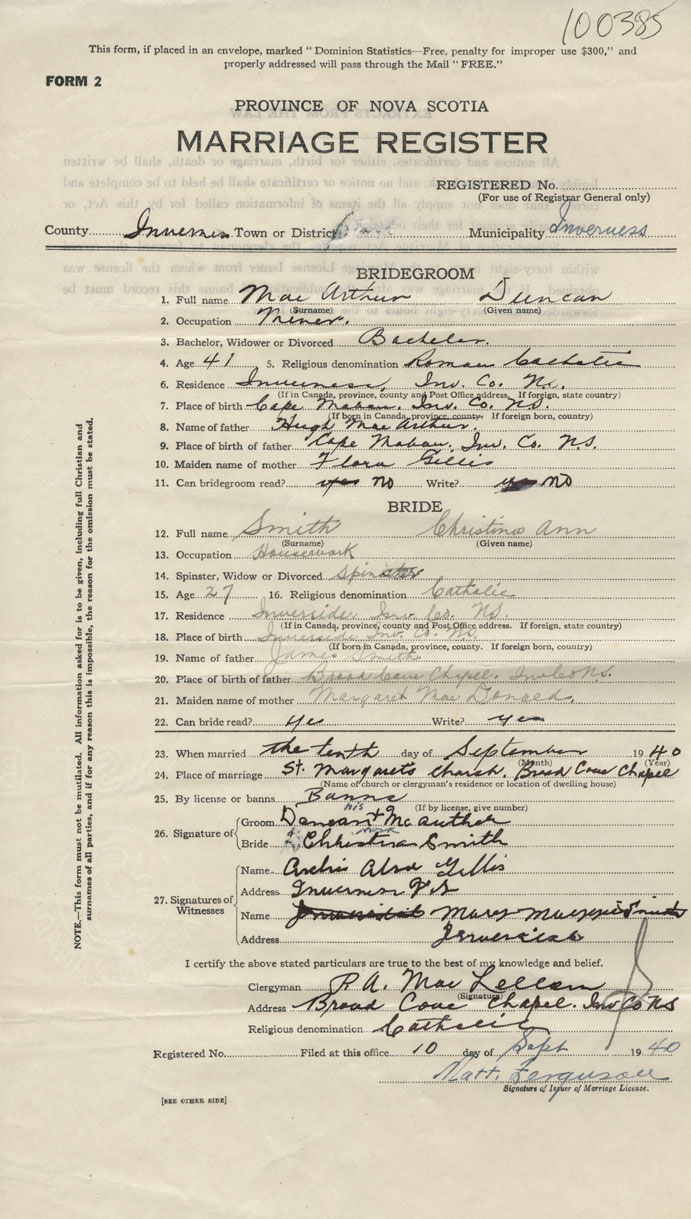 100385
This form, if placed in an envelope, marked "Dominion Statistics—Free, penalty for improper use $300," and
properly addressed will pass through the Mail "FREE."
FORM 2
PROVINCE OF NOVA SCOTIA
MARRIAGE REGISTER
REGISTERED No.
(For use of Registrar General only)
County Inverness Town or District Municipality Inverness
BRIDEGROOM
1. Full name Mac Arthur Duncan
(Surname) (Given name)
2. Occupation Miner.
3. Bachelor, Widower or Divorced Bachelor.
4. Age 41 5. Religious denomination Roman Catholic
6. Residence Inverness, Inv. Co. NS.
(If in Canada, province, county and Post Office address. If foreign, state country)
7. Place of birth Cape Mabou. Inv. Co. N.S.
(If born in Canada, province, county. If foreign born, country)
8. Name of father Hugh Mac Arthur.
9. Place of birth of father Cape Mabou. Inv. Co. N.S.
10. Maiden name of mother Flora Gillis
11. Can bridegroom read? yes NO Write? yes NO
BRIDE
12. Full name Smith Christina Ann
(Surname) (Given name)
13. Occupation Housework
14. Spinster, Widow or Divorced Spinster
15. Age 27 16. Religious denomination Catholic
17. Residence Inverside. Inv. Co. NS.
(If in Canada, province, county and Post Office address. If foreign, state country)
18. Place of birth Inverside Inv. Co. NS.
(If born in Canada, province, county. If foreign born, country)
19. Name of father James Smith.
20. Place of birth of father Broad Cove Chapel. Inv Co NS.
21. Maiden name of mother Margaret Mac Donald.
22. Can bride read? yes Write? yes
23. When married the tenth day of September 1940
(Month) (Year)
24. Place of marriage St. Margarets church. Broad Cove Chapel
(Name of church or clergyman's residence or location of dwelling house)
25. By license or banns Banns
(If by license, give number)
his
26. Signature of Groom Duncan + McAuther
mark
Bride Christina Smith
27. Signatures of Witnesses
Name Archie Gillis
Address Inverness N S
Name Mary Smith
Address Inverside
I certify the above stated particulars are true to the best of my knowledge and belief.
Clergyman R. A. Mac Lellan
(Signature)
Address Broad Cove Chapel. Inv Co NS
Religious denomination Catholic
Registered No. Filed at this office 10 day of Sept 1940
Matt. Ferguson
Signature of Issuer of Marriage License.
[SEE OTHER SIDE]
NOTE.—This form must not be mutilated. All information asked for is to be given, including full Christian and
surnames of all parties, and if for any reason this is impossible, the reason for the omission must be stated.